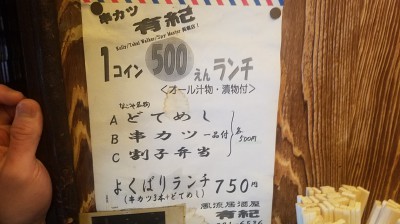 串カツ 有紀
1コイン 500えん ランチ
<オール汁物・漬物付>
A どてめし
B 串カツ 一品付
各500円
C 割子弁当
よくばりランチ 750円
(串カツ3本+どてめし)
風流居酒屋
有紀